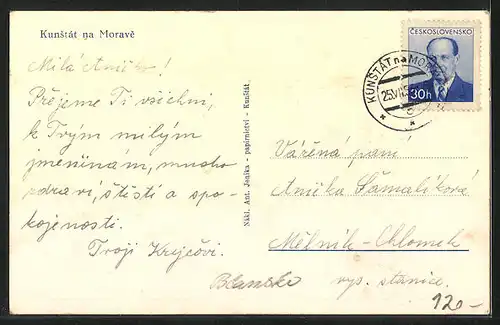 Kunštát na Moravě
Milá Aničko!
Přejeme Ti všichni,
k Tvým milým
jmeninám, mnoho
zdraví, štěstí a spo-
kojenosti.
Tvoji Krejčovi.
Nákl. Ant. Jonika - papírnictví - Kunštát.
ČESKOSLOVENSKO
30h
KUNŠTÁT na MORAVĚ
25.VII.5
Vážená paní
Anička Šamalíková
Mělník-Chlomek
vys. stanice.
Blansko
120-